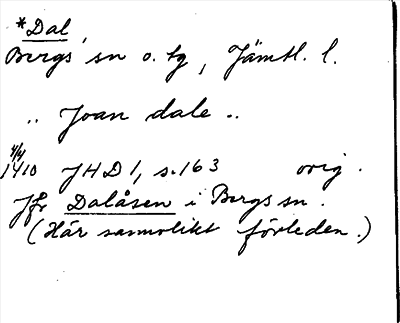 *Dal
Bergs sn o. tg, Jämtl. l.
.. Joan dale ..
4/4
1410 JHD 1, s. 163 orig.
Jfr Dalåsen i Bergs sn.
(Här sannolikt förleden.)